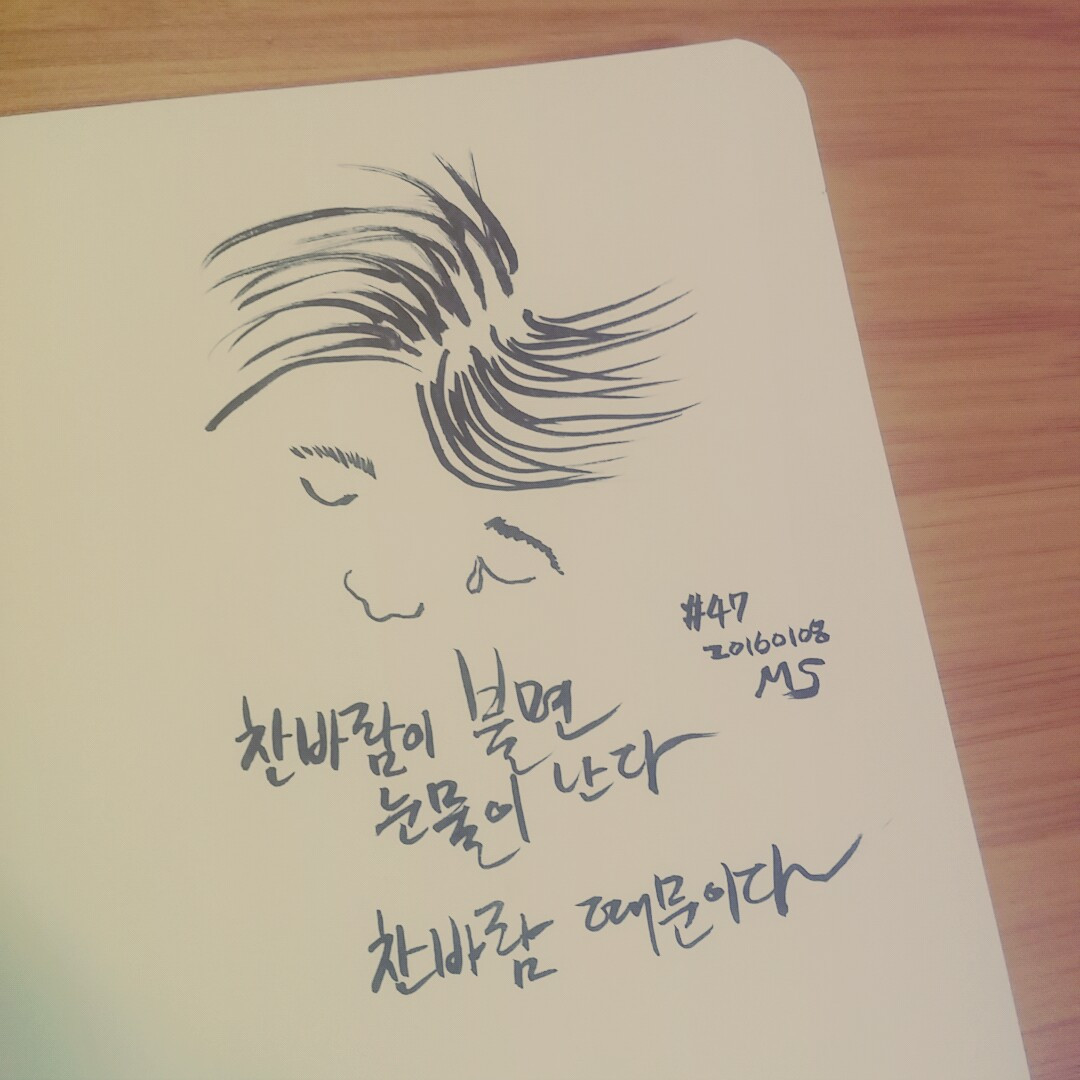 #47
20160108
MS
찬바람이 불면
눈물이 난다
찬바람 때문이다